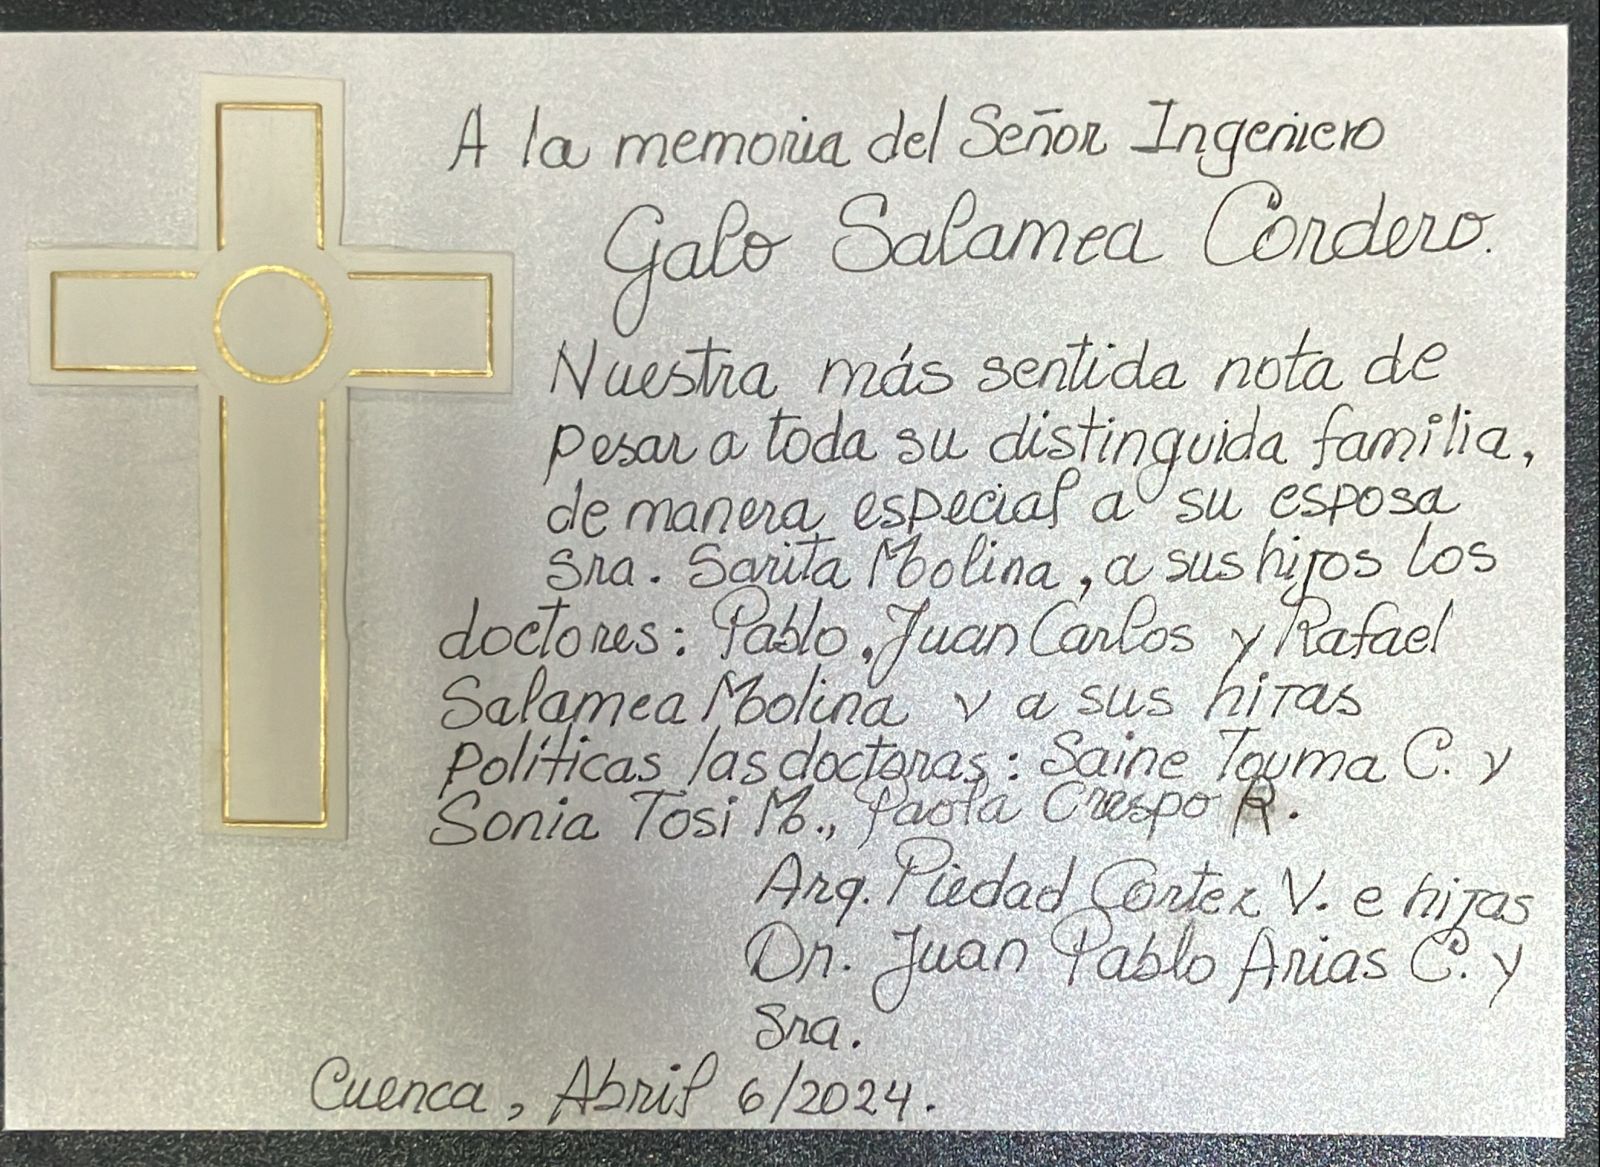 A la memoria del Señor Ingeniero
Galo Salamea Cordero.
Nuestra más sentida nota de
pesar a toda su distinguida familia,
de manera especial a su esposa
Sra. Sarita Molina, a sus hijos los
doctores: Pablo, Juan Carlos y Rafael
Salamea Molina y a sus hijas
políticas las doctoras: Saine Touma C. y
Sonia Tosi M., Paola Crespo R.
Arq. Piedad Cortez V. e hijas
Dr. Juan Pablo Arias C. y
Sra.
Cuenca, Abril 6/2024.